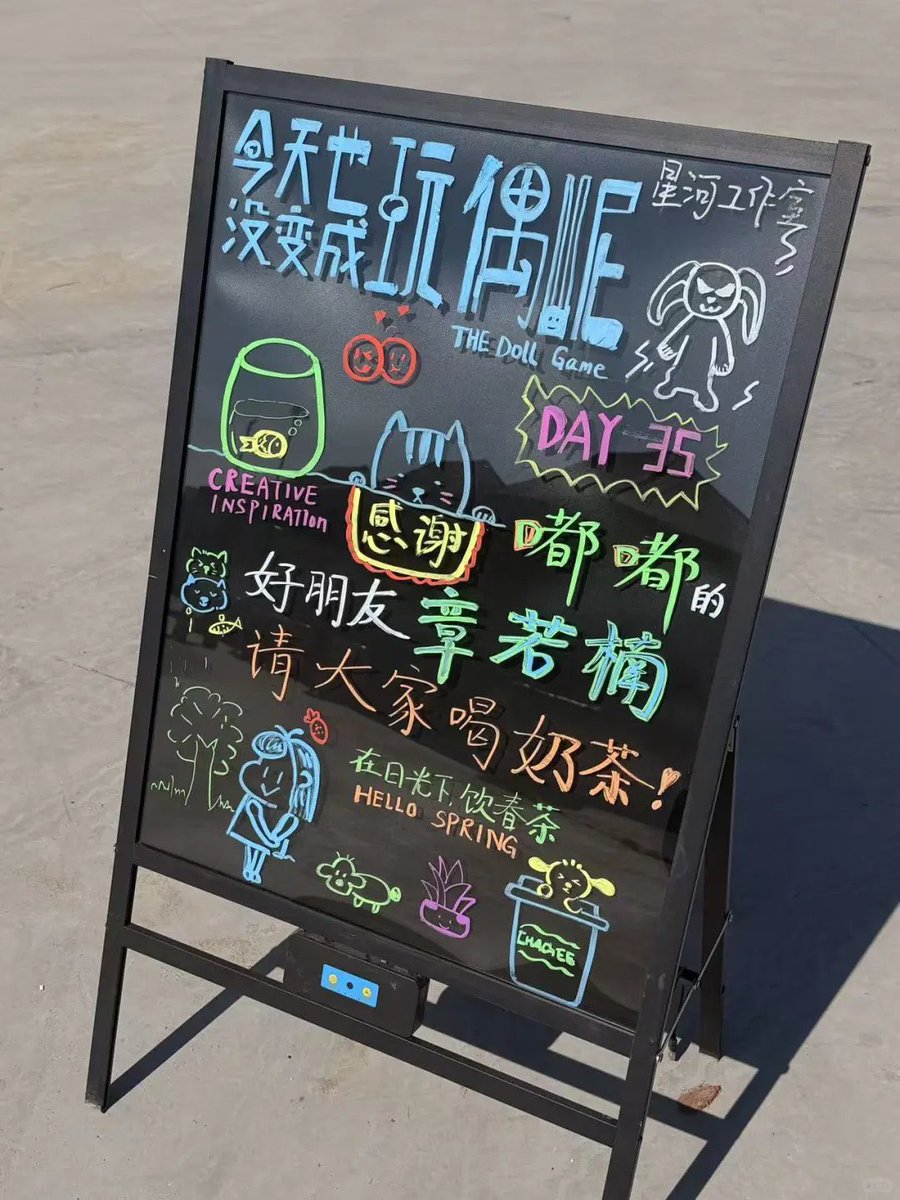 今天也
没变成
玩偶呢
星河工作室
THE Doll Game
DAY 35
CREATIVE
INSPIRATIOn
感谢
嘟嘟的
好朋友章若楠
请大家喝奶茶!
在日光下,饮春茶
HELLO SPRING
CHAGEE